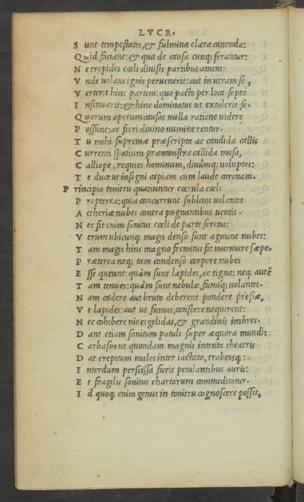 LVCR.
S unt tempestates, & fulmina clara canenda:
Q uid faciant: & qua de causa cunq; ferantur:
N e trepides cœli diuisis partibus amens:
V nde uolans ignis peruenerit: aut in utram se,
V erterit hinc partem: quo pacto per loca septa
I nsinuarit: & hinc dominatus ut extulerit se.
Q uorum operum causas nulla ratione uidere
P ossunt: ac fieri diuino numine rentur.
T u mihi supremæ præscripta ac candida callis
C urrenti spatium præmonstra callida musa,
C alliope, requies hominum, diuûmq; uoluptas:
T e duce ut insigni capiam cum laude coronam.
P rincipio tonitru quatiuntur cærula cœli
P ropterea: quia concurrunt sublime uolantes
A etheriæ nubes contra pugnantibus uentis.
N ec fit enim sonitus cœli de parte serena:
V erum ubicunq; magis denso sunt agmine nubes:
T am magis hinc magno fremitus fit murmure sæpe.
P ræterea neq; tam condenso corpore nubes
E sse queunt: quàm sunt lapides, ac tigna: neq; autē
T am tenues: quàm sunt nebulæ, fumíq; uolantes.
N am cadere aut bruto deberent pondere pressæ,
V t lapides: aut ut fumus, constare nequirent:
N ec cohibere niues gelidas, & grandinis imbres.
D ant etiam sonitum patuli super æquora mundi:
C arbasus ut quondam magnis intenta theatris
D at crepitum malos inter iactata, trabesq;:
I nterdum perscissa furit petulantibus auris:
E t fragilis sonitus chartarum commeditatur.
I d quoq; enim genus in tonitru cognoscere possis,